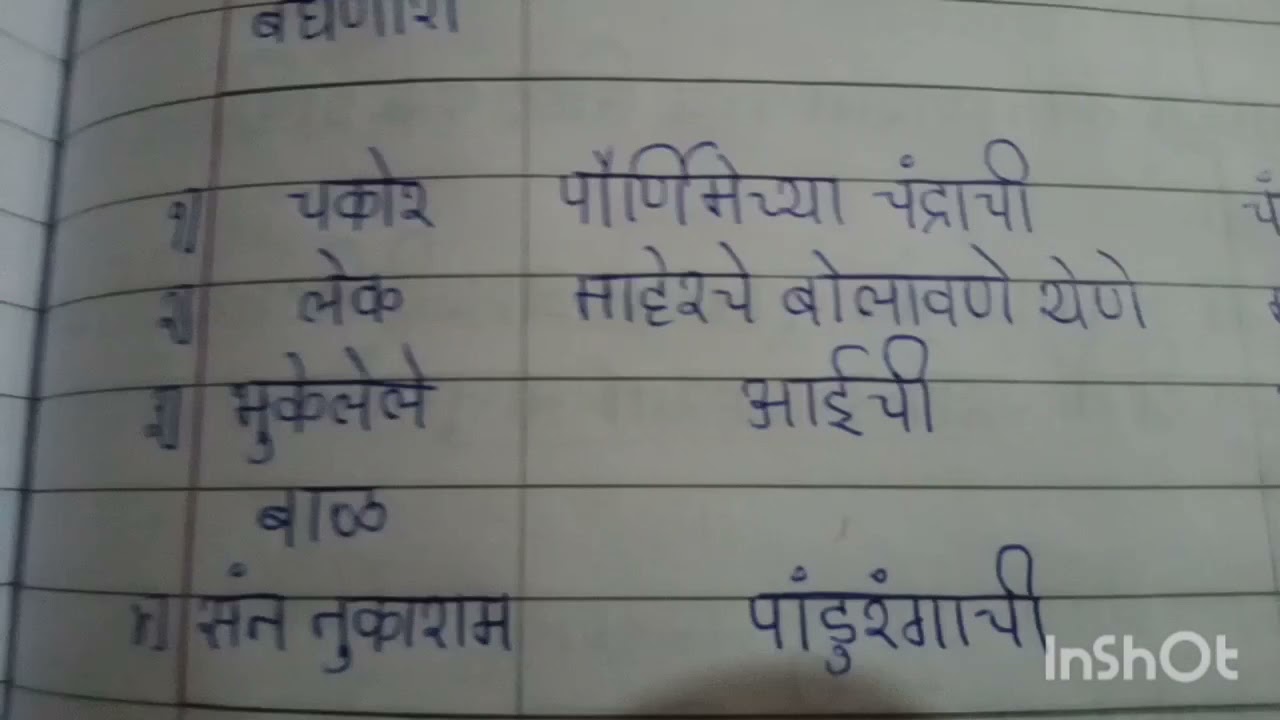 बघणारा
१) चकोर पौर्णिमेच्या चंद्राची
२) लेक माहेरचे बोलावणे येणे
३) भुकेलेले आईची
बाळ
४) संत तुकाराम पांडुरंगाची
InShOt